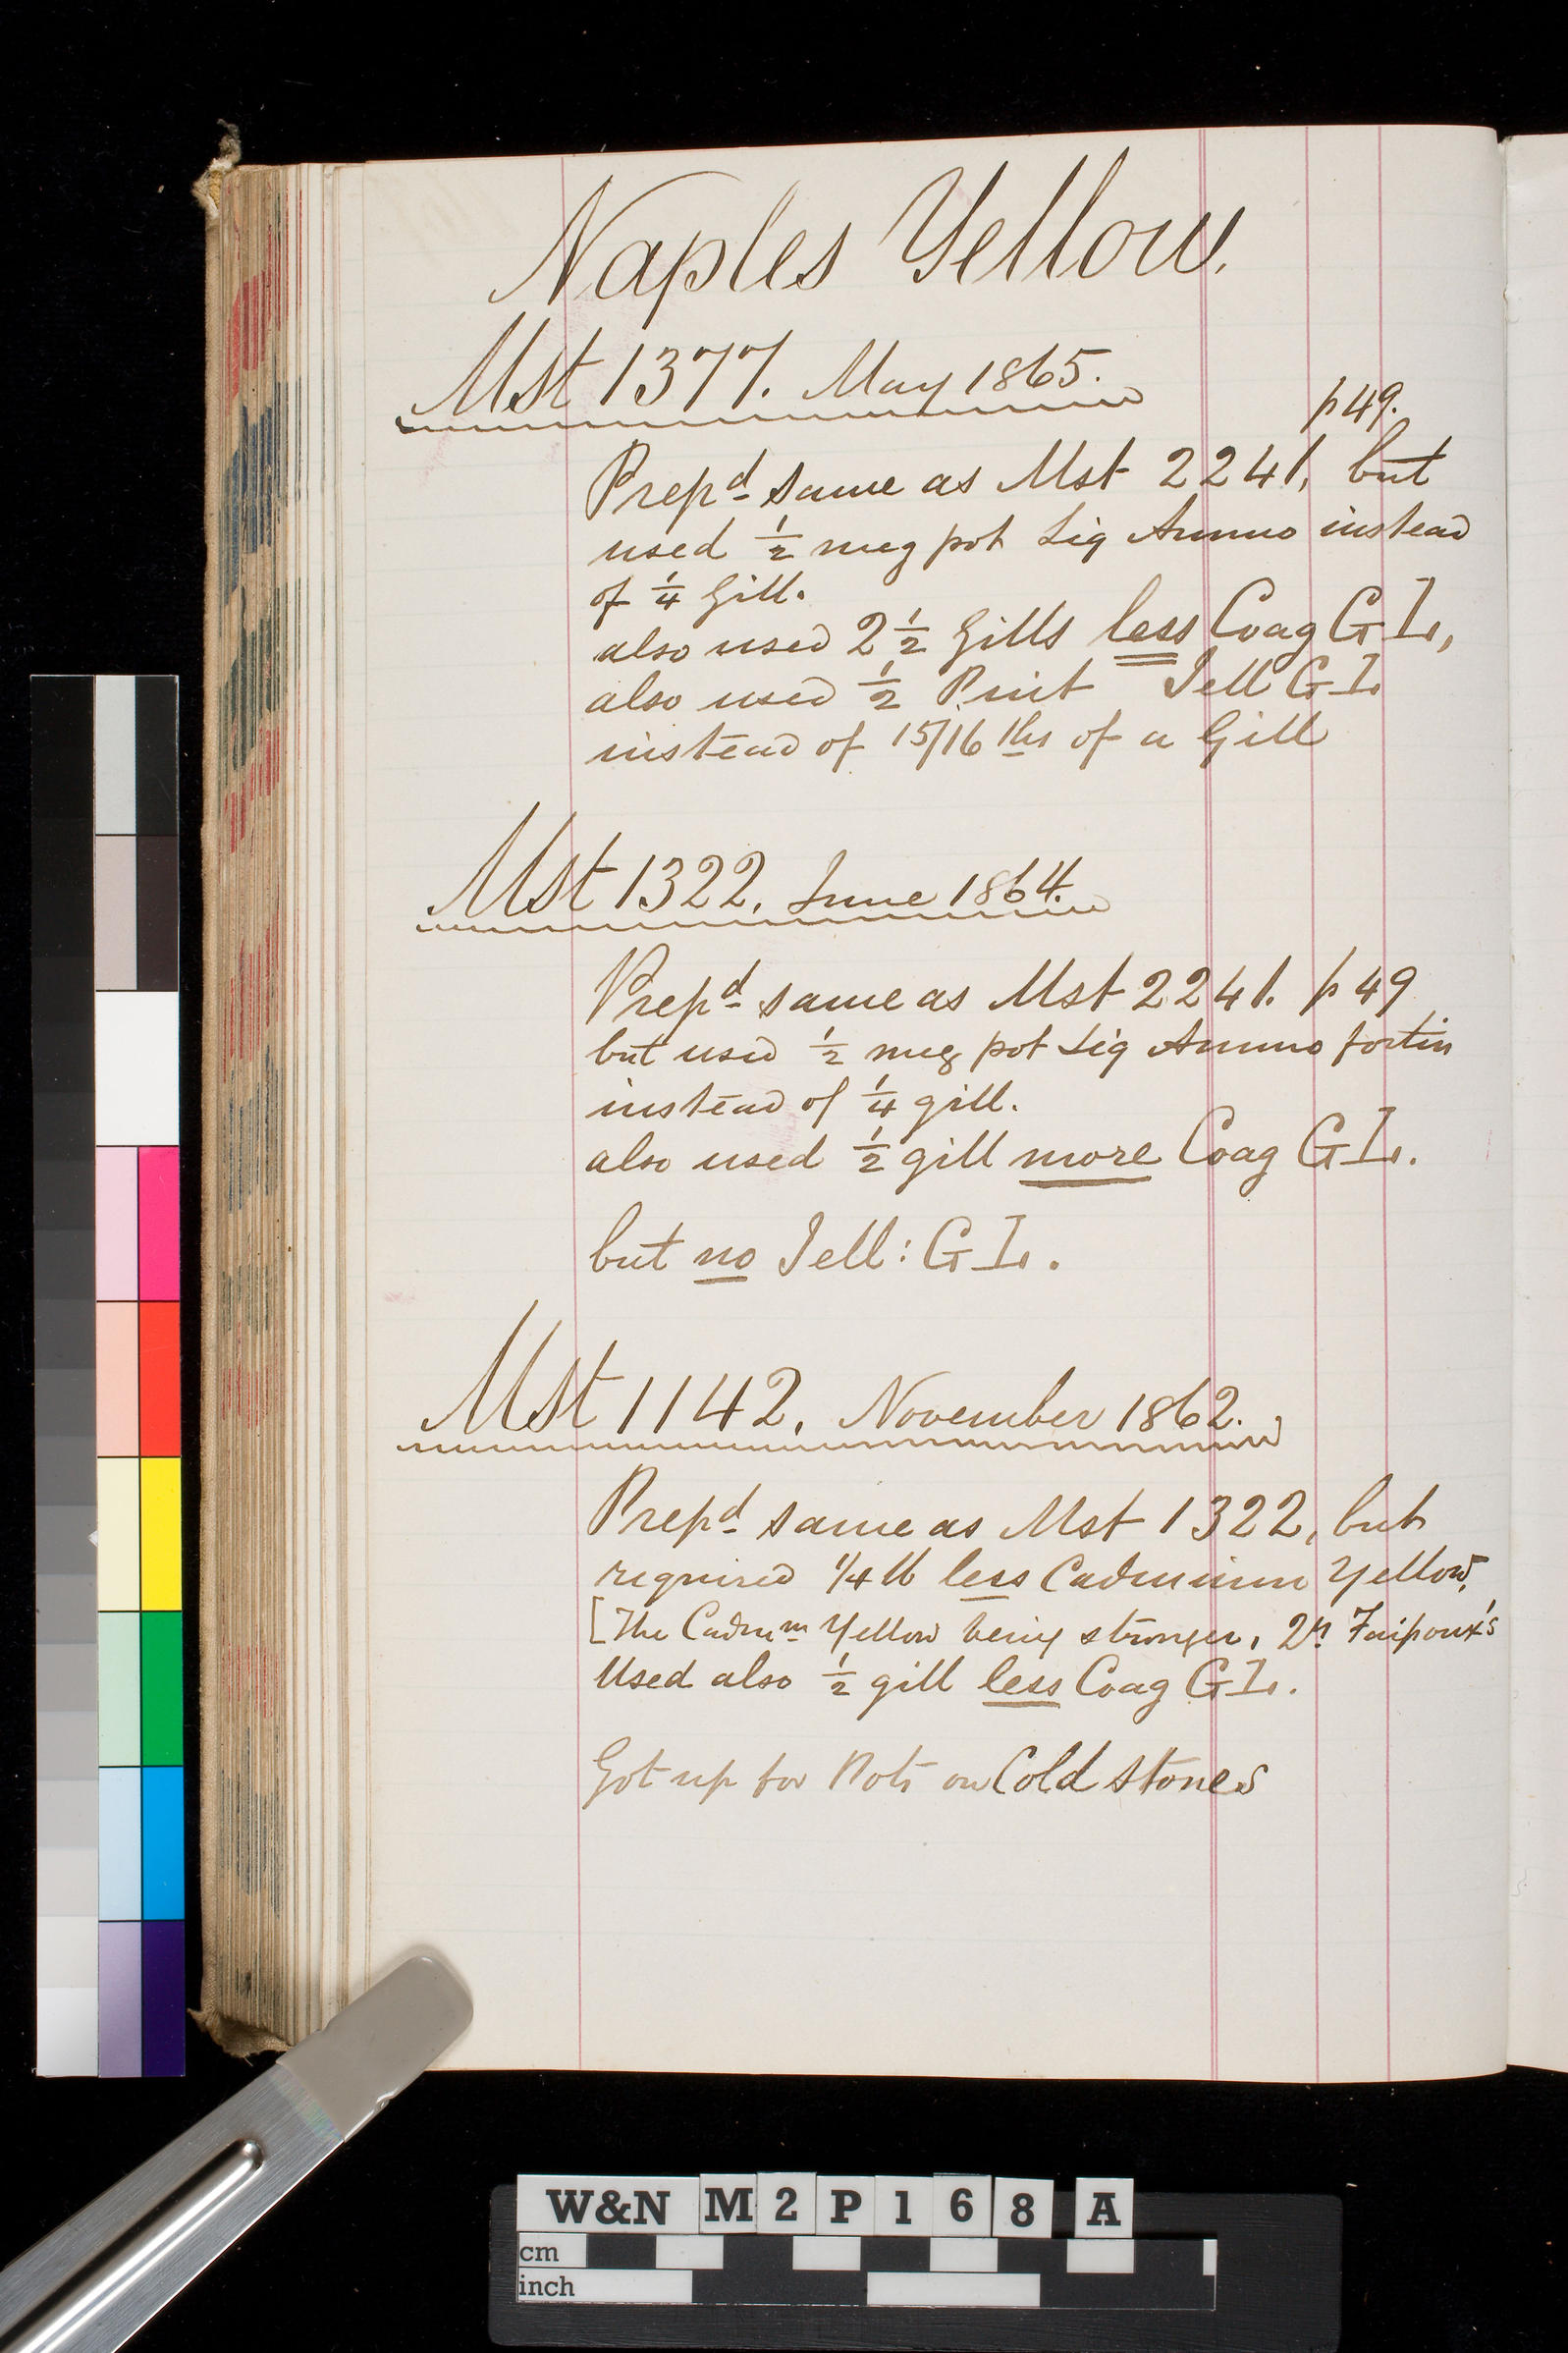 Naples Yellow.
Mst 1377. May 1865.
p 49.
Prepd same as Mst 2241, but
used ½ meg pot Liq Ammo instead
of ¼ Gill.
also used 2½ Gills less Coag G L,
also used ½ Pint Jell G L
instead of 15/16 ths of a Gill
Mst 1322, June 1864.
Prepd same as Mst 2241. p 49
but used ½ meg pot Liq Ammo fortis
instead of ¼ gill.
also used ½ gill more Coag G L.
but no Jell: G L.
Mst 1142, November 1862.
Prepd same as Mst 1322, but
required ¼ lb less Cadmium Yellow,
[The Cadmm Yellow being stronger,
Used also ½ gill less Coag G L.
Got up for Pots on Cold stones
W&N M2P168 A
cm
inch